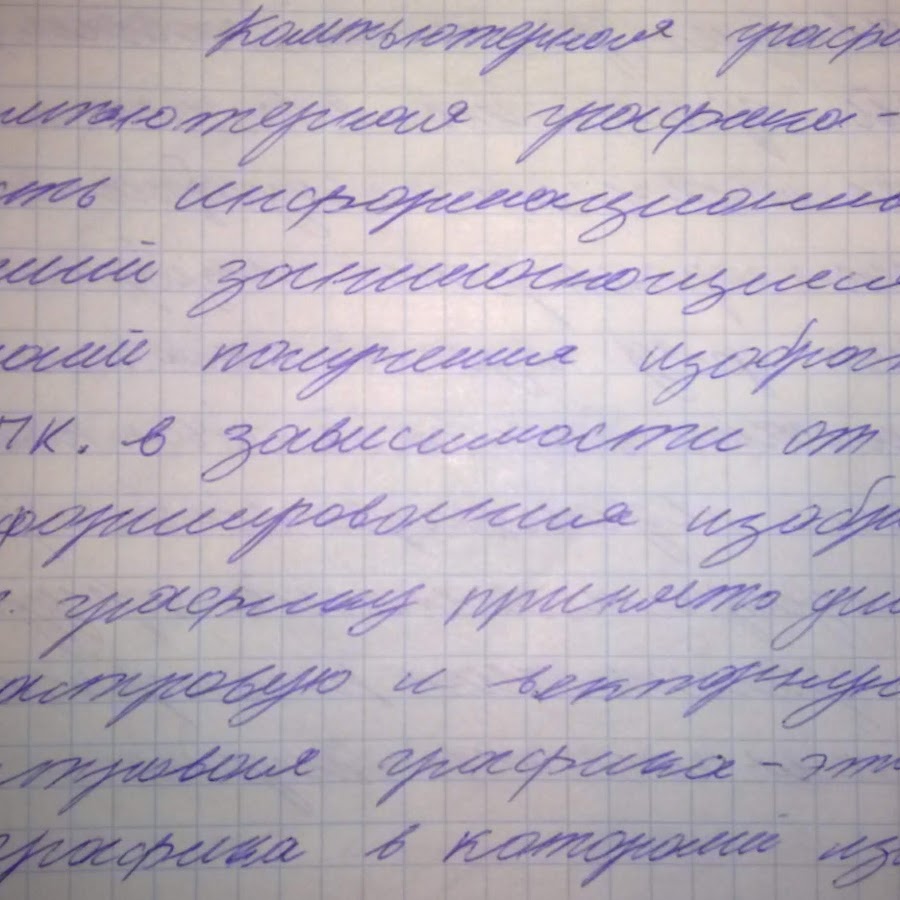 Компьютерная графи
мпьютерная графика -
сть информационны
ний занимающиеся
ний получения изображ
ПК. в зависимости от
формирования изобра
графику принято
астровую и векторную
стровая графика - это
графика в которой из